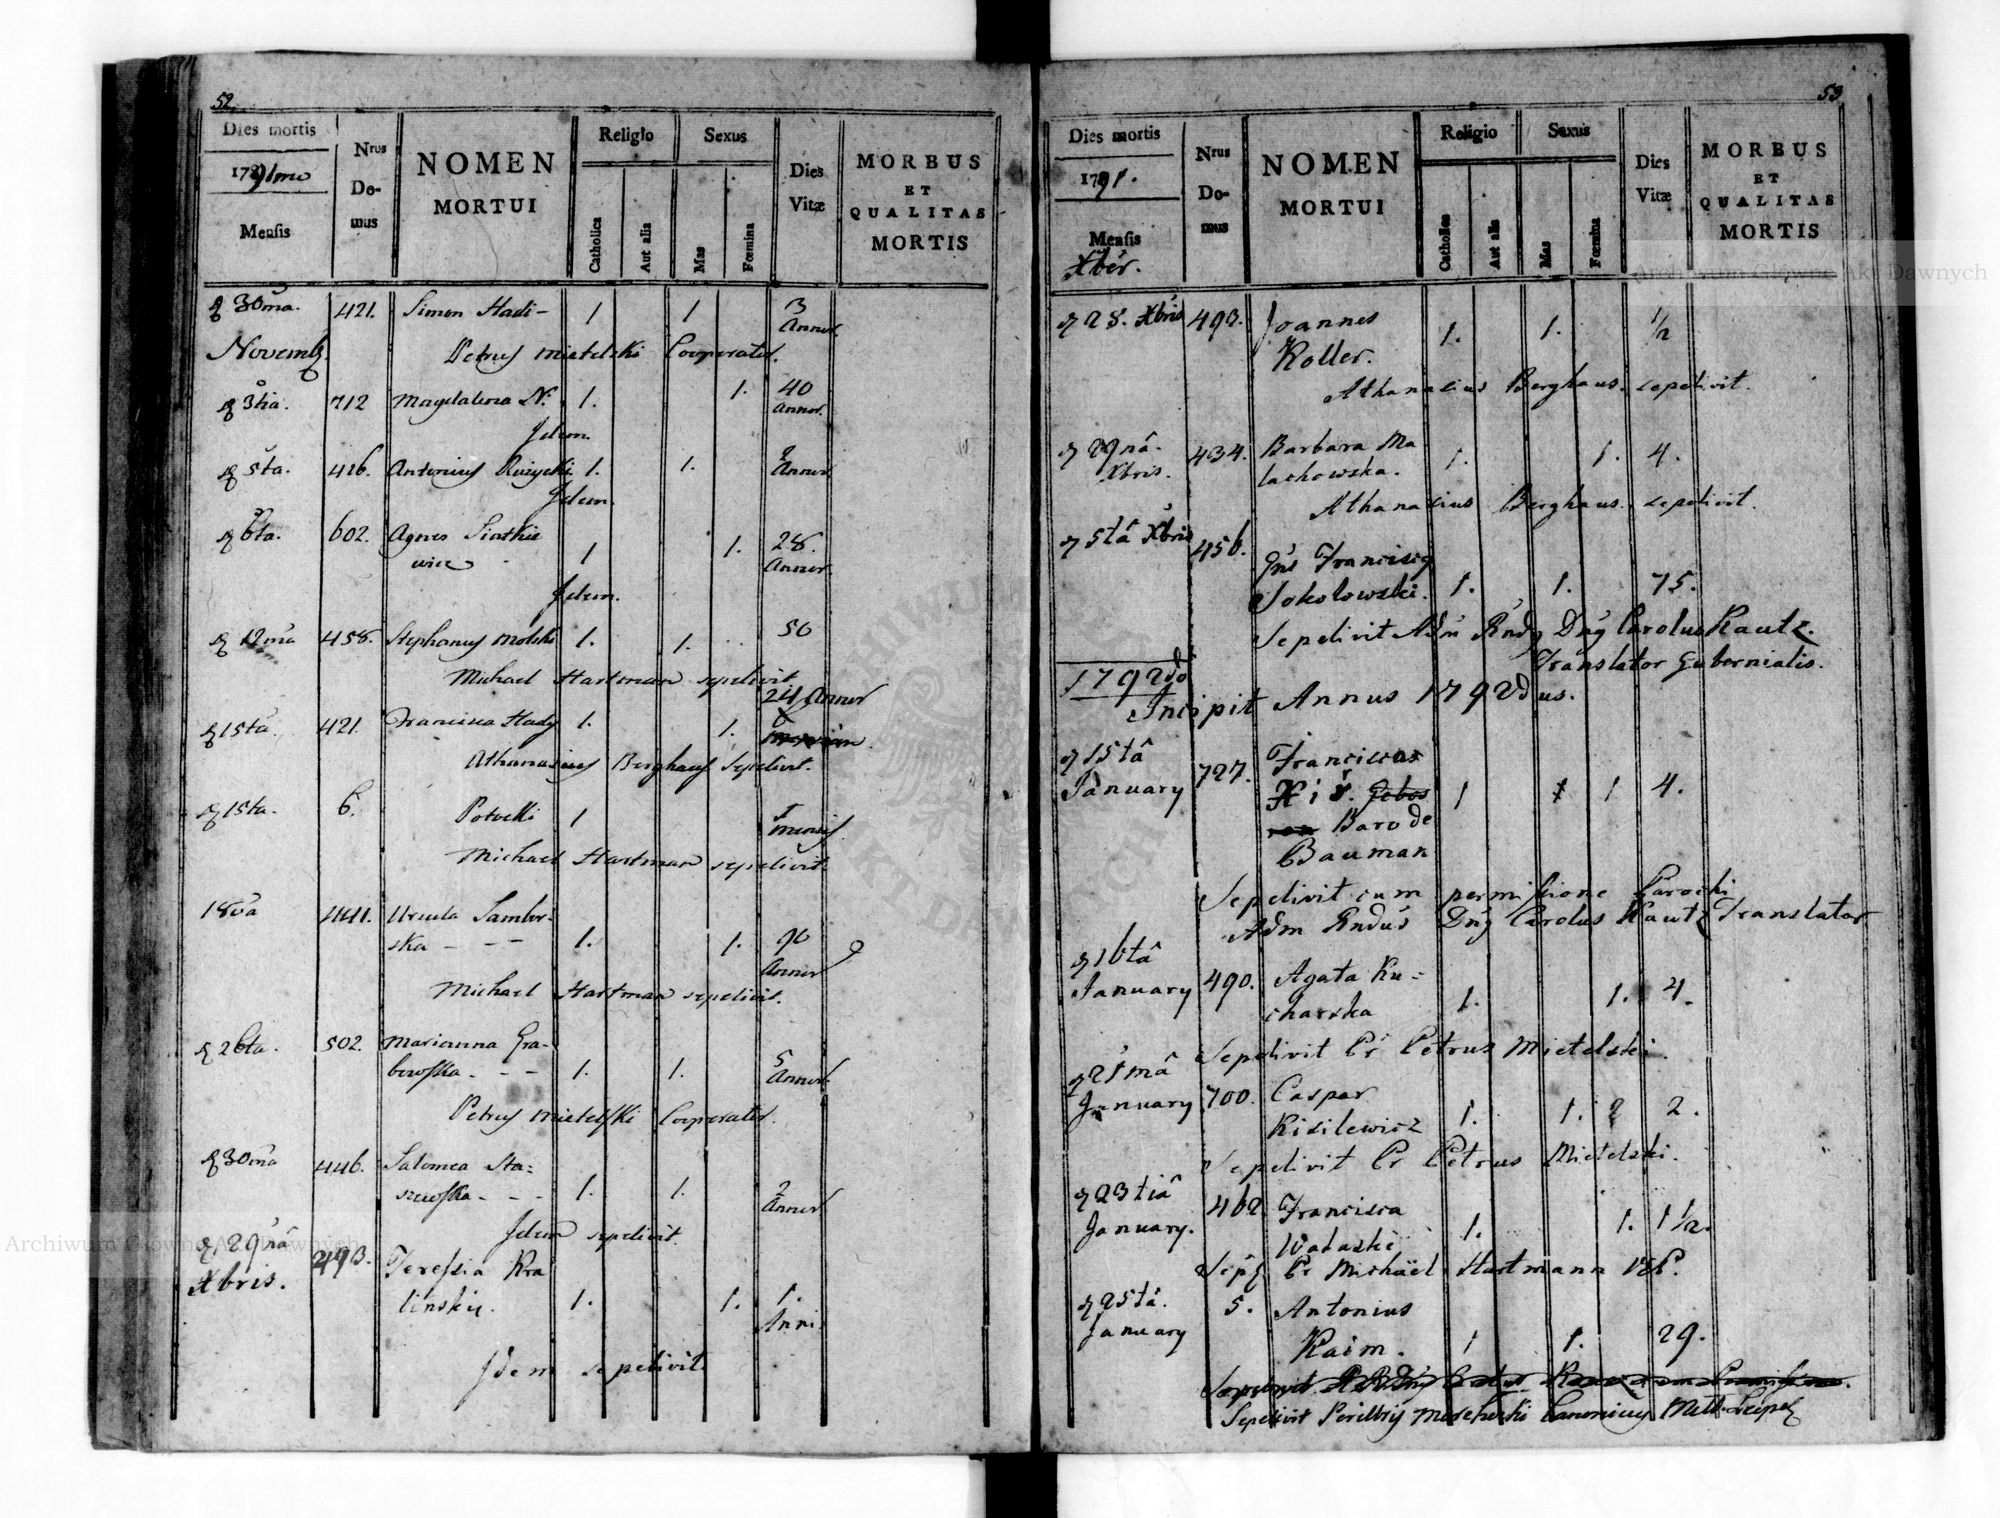 52.
Dies mortis
1791mo
Mensis
Nrus Do-mus
NOMEN MORTUI
Religio
Catholica
Aut alia
Sexus
Mas
Fœmina
Dies Vitæ
MORBUS ET QUALITAS MORTIS
30ma. 421. Simon Hadi- 1 1 3 Annor.
Novemb. Petrus Mietelski Cooperator.
3tia. 712 Magdalena N. 1. 1. 40 Annor.
Idem.
5ta. 416. Antonius Ruzycki 1. 1. 2 Annor.
Idem.
6ta. 602. Agnes
1 1. 28. Annor.
Idem.
12ma 458. Stephanus Molski 1. 1. 50
Michael Hartman sepelivit
24 Annor
15ta. 421. Francisca Hady 1. 1.
Athanasius Berghaus sepelivit.
15ta. 6. Potocki 1
Michael Hartman sepelivit.
18va 441. Ursula Sambor-
ska - - - 1. 1. 90 Annor
Michael Hartman sepelivit.
26ta. 502. Marianna Gra-
bowska - - - 1. 1. 5 Annor.
Petrus Mietelski Cooperator.
30ma 446. Salomea Sta=
szewska - - - 1. 1. 2 Annor
Idem sepelivit.
29nâ 493. Teressia Kra
Xbris. linski. 1. 1. 1. Anni
Idem sepelivit.
53
Dies mortis
1791.
Mensis
Xber.
Nrus Do-mus
NOMEN MORTUI
Religio
Catholica
Aut alia
Sexus
Mas
Fœmina
Dies Vitæ
MORBUS ET QUALITAS MORTIS
28. Xbris 493. Joannes
Koller. 1. 1. 1/2
Athanasius Berghaus. sepelivit.
29nâ. 434. Barbara Ma
Xbris. lachowska. 1. 1. 4.
Athanasius Berghaus. sepelivit.
5tâ Xbris 456.
Franciscq
Sokolowski. 1. 1. 75.
Sepelivit Adm Rndq Dnq Carolus Kautz.
Translator Gubernialis.
1792do
Incipit Annus 1792dus.
15tâ 727. Franciscus
January Xis. 1 1 4.
Baro de
Bauman
Sepelivit cum permissione Parochi
Adm Rndus Dnq Carolus Kautz Translator
16tâ
January 490. Agata Ku-
charska 1. 1. 4.
Sepelivit Pr Petrus Mietelski.
21mâ
January 700. Caspar
Kisilewicz 1. 1. 2.
Sepelivit Pr Petrus Mietelski.
23tiâ 462. Francisca
January. 1. 1. 1 1/2.
Pr Michäel Hartmann
25tâ. 5. Antonius
January Kaim. 1 1. 29.
Sepelivit
Archiwum Główne Akt Dawnych
Archiwum Główne Akt Dawnych